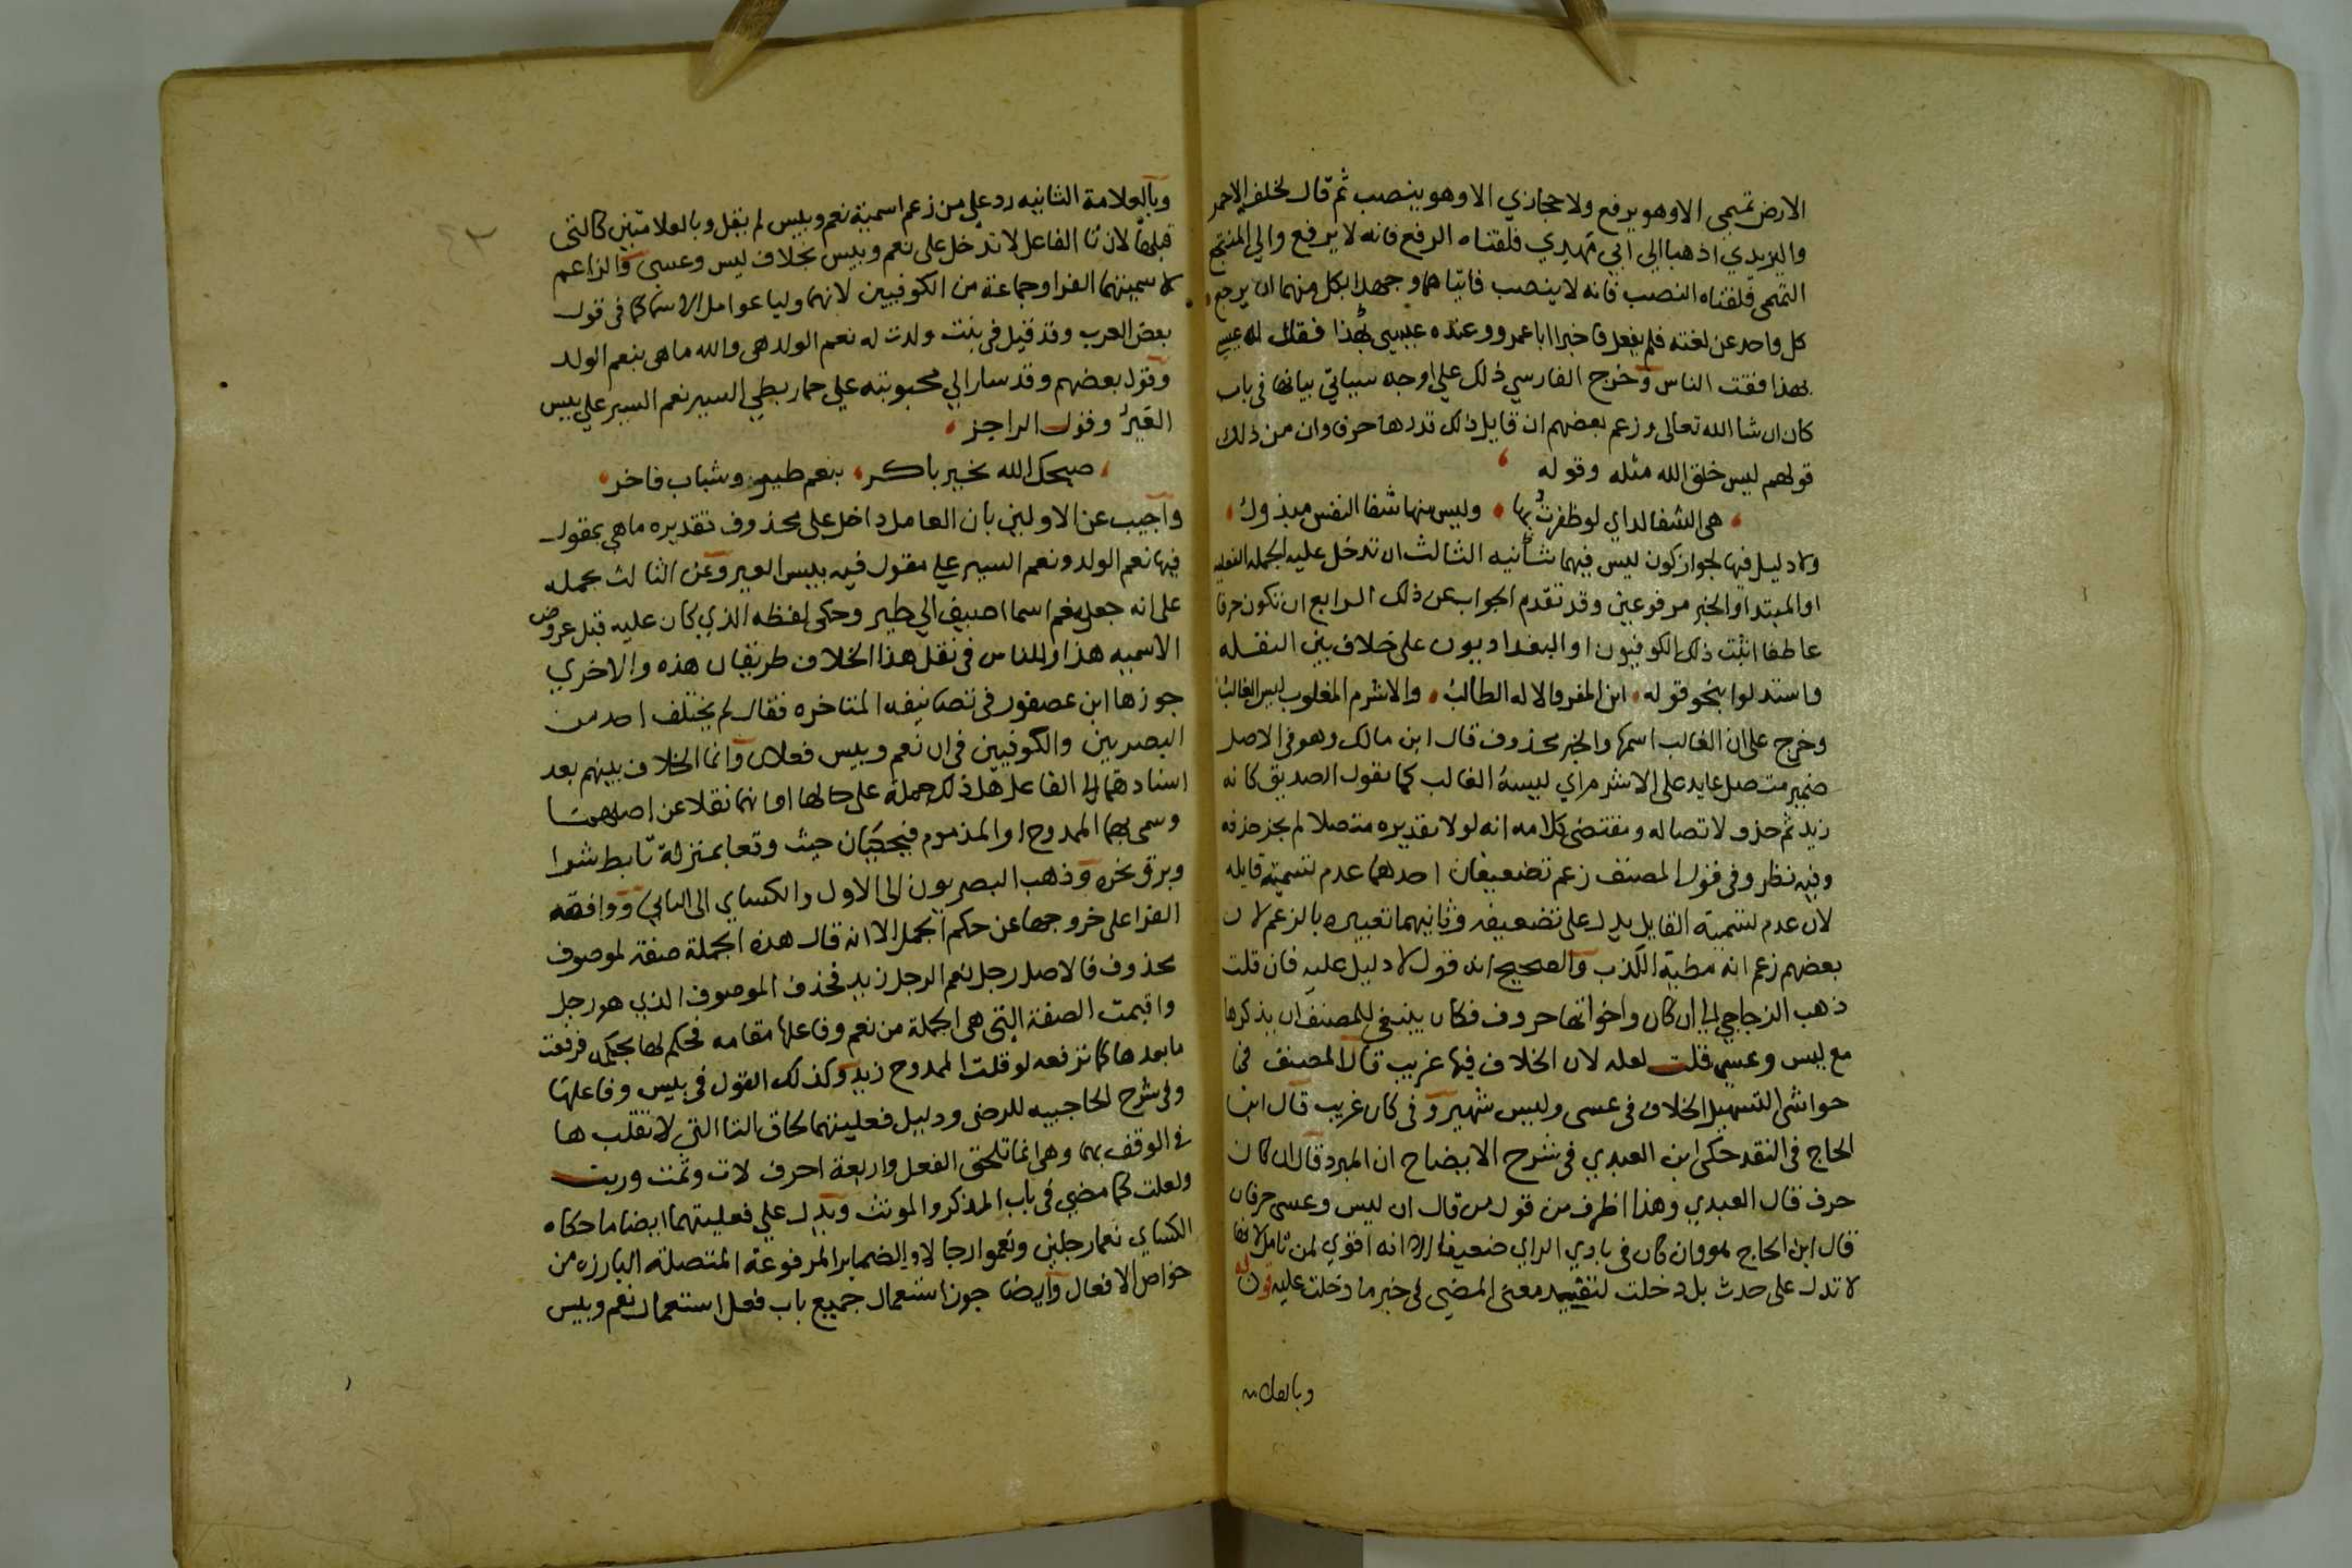 الارض تميمي الا وهو يرفع ولا حجازي الا وهو ينصب ثم قال لخلف الاحمر
واليزيدي اذهبا الي ابي مهدي فلقناه الرفع فانه لا يرفع والي المنتجع
التميمي فلقناه النصب فانه لا ينصب فاتياهما وجهدا بكل منهما ان يرجع
كل واحد عن لغته فلم يفعل فاخبرا ابا عمرو وعنده عيسي فقال له عيسي
بهذا فقت الناس وخرج الفارسي ذلك علي اوجه سياتي بيانها في باب
كان ان شا الله تعالى وزعم بعضهم ان قايل ذلك قدرها حرفا وان من ذلك
قولهم ليس خلق الله مثله وقوله
هي الشفا لداي لو ظفرت بها وليس منها شفا النفس مبذول
ولا دليل فيها لجواز كون ليس فيهما شانيه الثالث ان تدخل عليه الجمله الفعليه
او المبتدا والخبر مرفوعين وقد تقدم الجواب عن ذلك الرابع ان تكون حرفا
عاطفا اثبت ذلك الكوفيون او البغداديون على خلاف بين النقله
واستدلوا بنحو قوله اين المفر والاله الطالب والاشرم المغلوب ليس الغالب
وخرج على ان الغالب اسمها والخبر محذوف قال ابن مالك وهو في الاصل
ضمير متصل عايد على الاشرم اي ليسه الغالب كما تقول الصديق كانه
زيد ثم حذف لاتصاله ومقتضى كلامه انه لولا تقديره متصلا لم يجز حذفه
وفيه نظر وفي قول المصنف زعم تضعيفان احدهما عدم تسمية قايله
لان عدم تسمية القايل يدل على تضعيفه وثانيهما تعبيره بالزعم لان
بعضهم زعم انه مطية الكذب والصحيح انه قول لا دليل عليه فان قلت
ذهب الزجاجي الي ان كان واخواتها حروف فكان ينبغي للمصنف ان يذكرها
مع ليس وعسي قلت لعله لان الخلاف فيها غريب قال المصنف في
حواشي التسهيل الخلاف في عسى وليس شهير وفي كان غريب قال ابن
الحاج في النقد حكى ابن العبدي في شرح الايضاح ان المبرد قال ان كان
حرف قال العبدي وهذا اظرف من قول من قال ان ليس وعسى حرفان
قال ابن الحاج هو وان كان في بادي الراي ضعيفا الا انه اقوي لمن تامل لانها
لا تدل على حدث بل دخلت لتفيد معنى المضي في خبر ما دخلت عليه قوله
وبالعلامة
وبالعلامة الثانيه رد علي من زعم اسمية نعم وبيس لم يقل وبالعلامتين كالتي
قبلها لان تا الفاعل لا تدخل على نعم وبيس بخلاف ليس وعسى والزاعم
لاسميتهما الفرا وجماعة من الكوفيين لانهما وليا عوامل الاسما كما في قول
بعض العرب وقد قيل في بنت ولدت له نعم الولد هي والله ما هي بنعم الولد
وقول بعضهم وقد سار الي محبوبته علي حمار بطي السير نعم السير على بيس
العير وقول الراجز
صبحك الله بخير باكر بنعم طير وشباب فاخر
واجيب عن الاولين بان العامل داخل على محذوف تقديره ما هي بمقول
فيها نعم الولد ونعم السير علي مقول فيه بيس العير وعن الثالث بحمله
على انه جعل نعم اسما اضيف الي طير وحكى لفظه الذي كان عليه قبل عروض
الاسميه هذا وللناس في نقل هذا الخلاف طريقان هذه والاخري
جوزها ابن عصفور في تصانيفه المتاخره فقال لم يختلف احد من
البصريين والكوفيين في ان نعم وبيس فعلان وانما الخلاف بينهم بعد
اسنادهما الى الفاعل هل ذلك جملة على حالها او انهما نقلا عن اصلهما
وسمي بهما الممدوح او المذموم فيحكيان حيث وقعا بمنزلة تابط شرا
وبرق نحره وذهب البصريون الى الاول والكساي الى الثاني ووافقه
الفرا على خروجها عن حكم الجمل الا انه قال هذه الجملة صفة لموصوف
محذوف فالاصل رجل نعم الرجل زيد فحذف الموصوف الذي هو رجل
واقيمت الصفة التي هي الجملة من نعم وفاعلها مقامه فحكم لها بحكمه فرفعت
ما بعدها كما ترفعه لو قلت الممدوح زيد وكذلك القول في بيس وفاعلها
وفي شرح الحاجبيه للرضي ودليل فعليتهما لحاق التا التي لا تقلب ها
في الوقف بهما وهي انما تلحق الفعل واربعة احرف لات وثمت وربت
ولعلت كما مضي في باب المذكر والمونث ويدل علي فعليتهما ايضا ما حكاه
الكساي نعما رجلين ونعموا رجالا والضماير المرفوعة المتصلة البارزه من
خواص الافعال وايضا جوز استعمال جميع باب فعل استعمال نعم وبيس